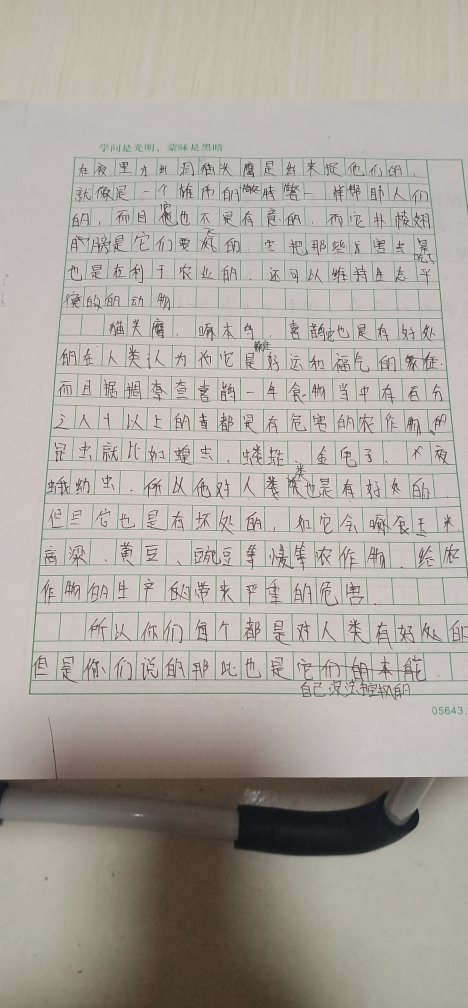 学问是光明，蒙昧是黑暗
在夜里才出洞猫头鹰是出来捉他们的，
就像是一个雄伟的警一样帮助人们
的，而且它也不是有意的，而它扑棱翅
膀是它们要飞的，它把那些害虫吃了
也是在利于农业的，还可以维持生态平
衡的的动物。
猫头鹰、啄木鸟，喜鹊它也是有好处
的在人类认为它是好运和福气的象征
而且据调查喜鹊一年食物当中有百分
之八十以上的都是有危害的农作物的
昆虫就比如蝗虫、蝼蛄、金龟子、夜
蛾幼虫，所以他对人类也是有好处的，
但是它也是有坏处的，如它会啄食玉米
高梁、黄豆、豌豆等农作物，给农
作物的生产带来严重的危害。
所以你们每个都是对人类有好处的
但是你们说的那些也是它们的本能，
自己没法控制的
05643